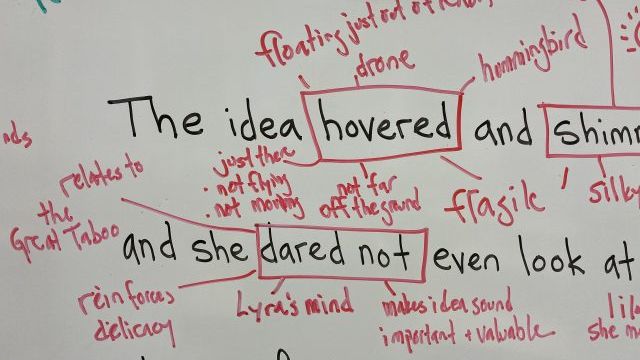 floating just out of
drone
hummingbird
The idea hovered and shimm
relates to
the
Great Taboo
just there
. not flying
. not moving
not far
off the ground
fragile
silky
and she dared not even look at
reinforces
delicacy
Lyra's mind
makes idea sound
important + valuable
she